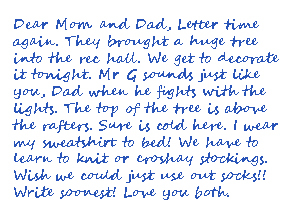 Dear Mom and Dad, Letter time
again. They brought a huge tree
into the rec hall. We get to decorate
it tonight. Mr G sounds just like
you, Dad when he fights with the
lights. The top of the tree is above
the rafters. Sure is cold here. I wear
my sweatshirt to bed! We have to
learn to knit or croshay stockings.
Wish we could just use out socks!!
Write soonest! Love you both.